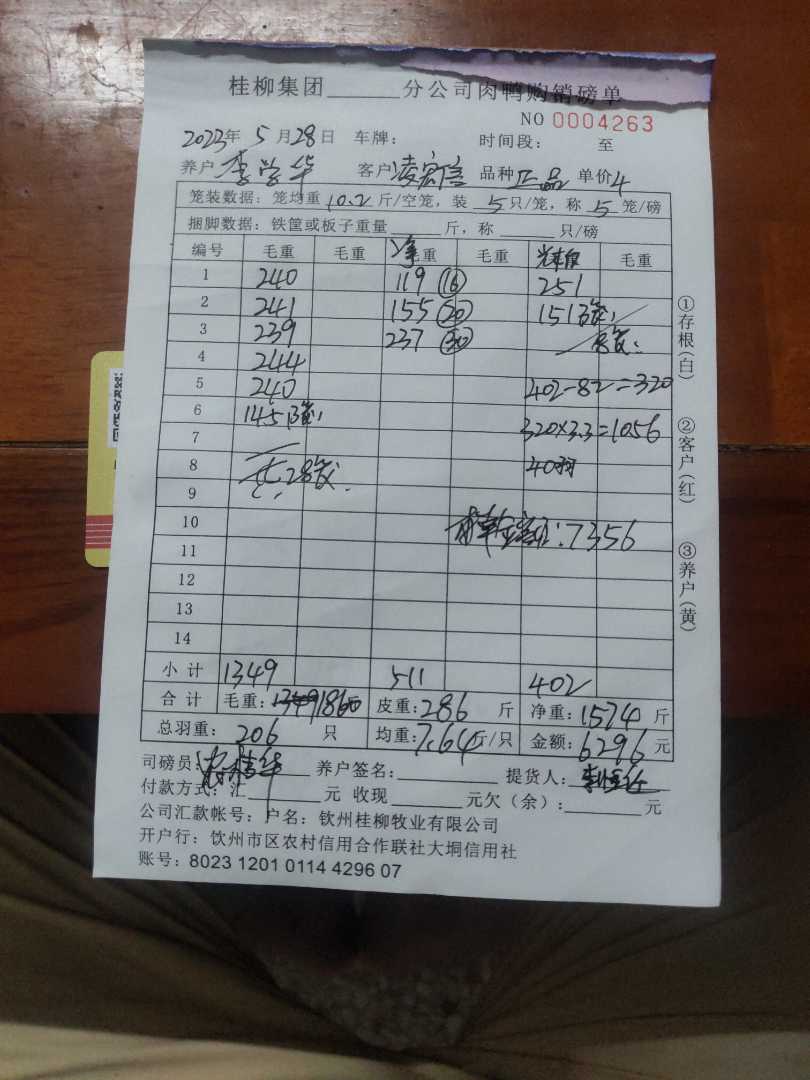 桂柳集团______分公司肉鸭购销磅单
NO 0004263
2023年 5月28日 车牌: 时间段: 至
养户 李学华 客户 凌宏信 品种 正品 单价 4
笼装数据: 笼均重 10.2 斤/空笼, 装 5 只/笼, 称 5 笼/磅
捆脚数据: 铁筐或板子重量______斤, 称______只/磅
编号 毛重 毛重 净重 毛重 毛重
1 240 119 (16) 251
2 241 155 (20) 151 3笼
3 239 237 (30) 8笼
4 244
5 240 402-82=320
6 145 3笼
7 320×3.3=1056
8 28笼 40羽
9
10 :7356
11
12
13
14
小计 1349 511 402
合计 毛重: 1860 皮重: 286 斤 净重: 1574 斤
总羽重: 206 只 均重: 7.64 斤/只 金额: 6296 元
司磅员: 养户签名: 提货人:
付款方式: 汇______元 收现______元欠(余):______元
公司汇款帐号: 户名: 钦州桂柳牧业有限公司
开户行: 钦州市区农村信用合作联社大垌信用社
账号: 8023 1201 0114 4296 07
①存根(白)
②客户(红)
③养户(黄)